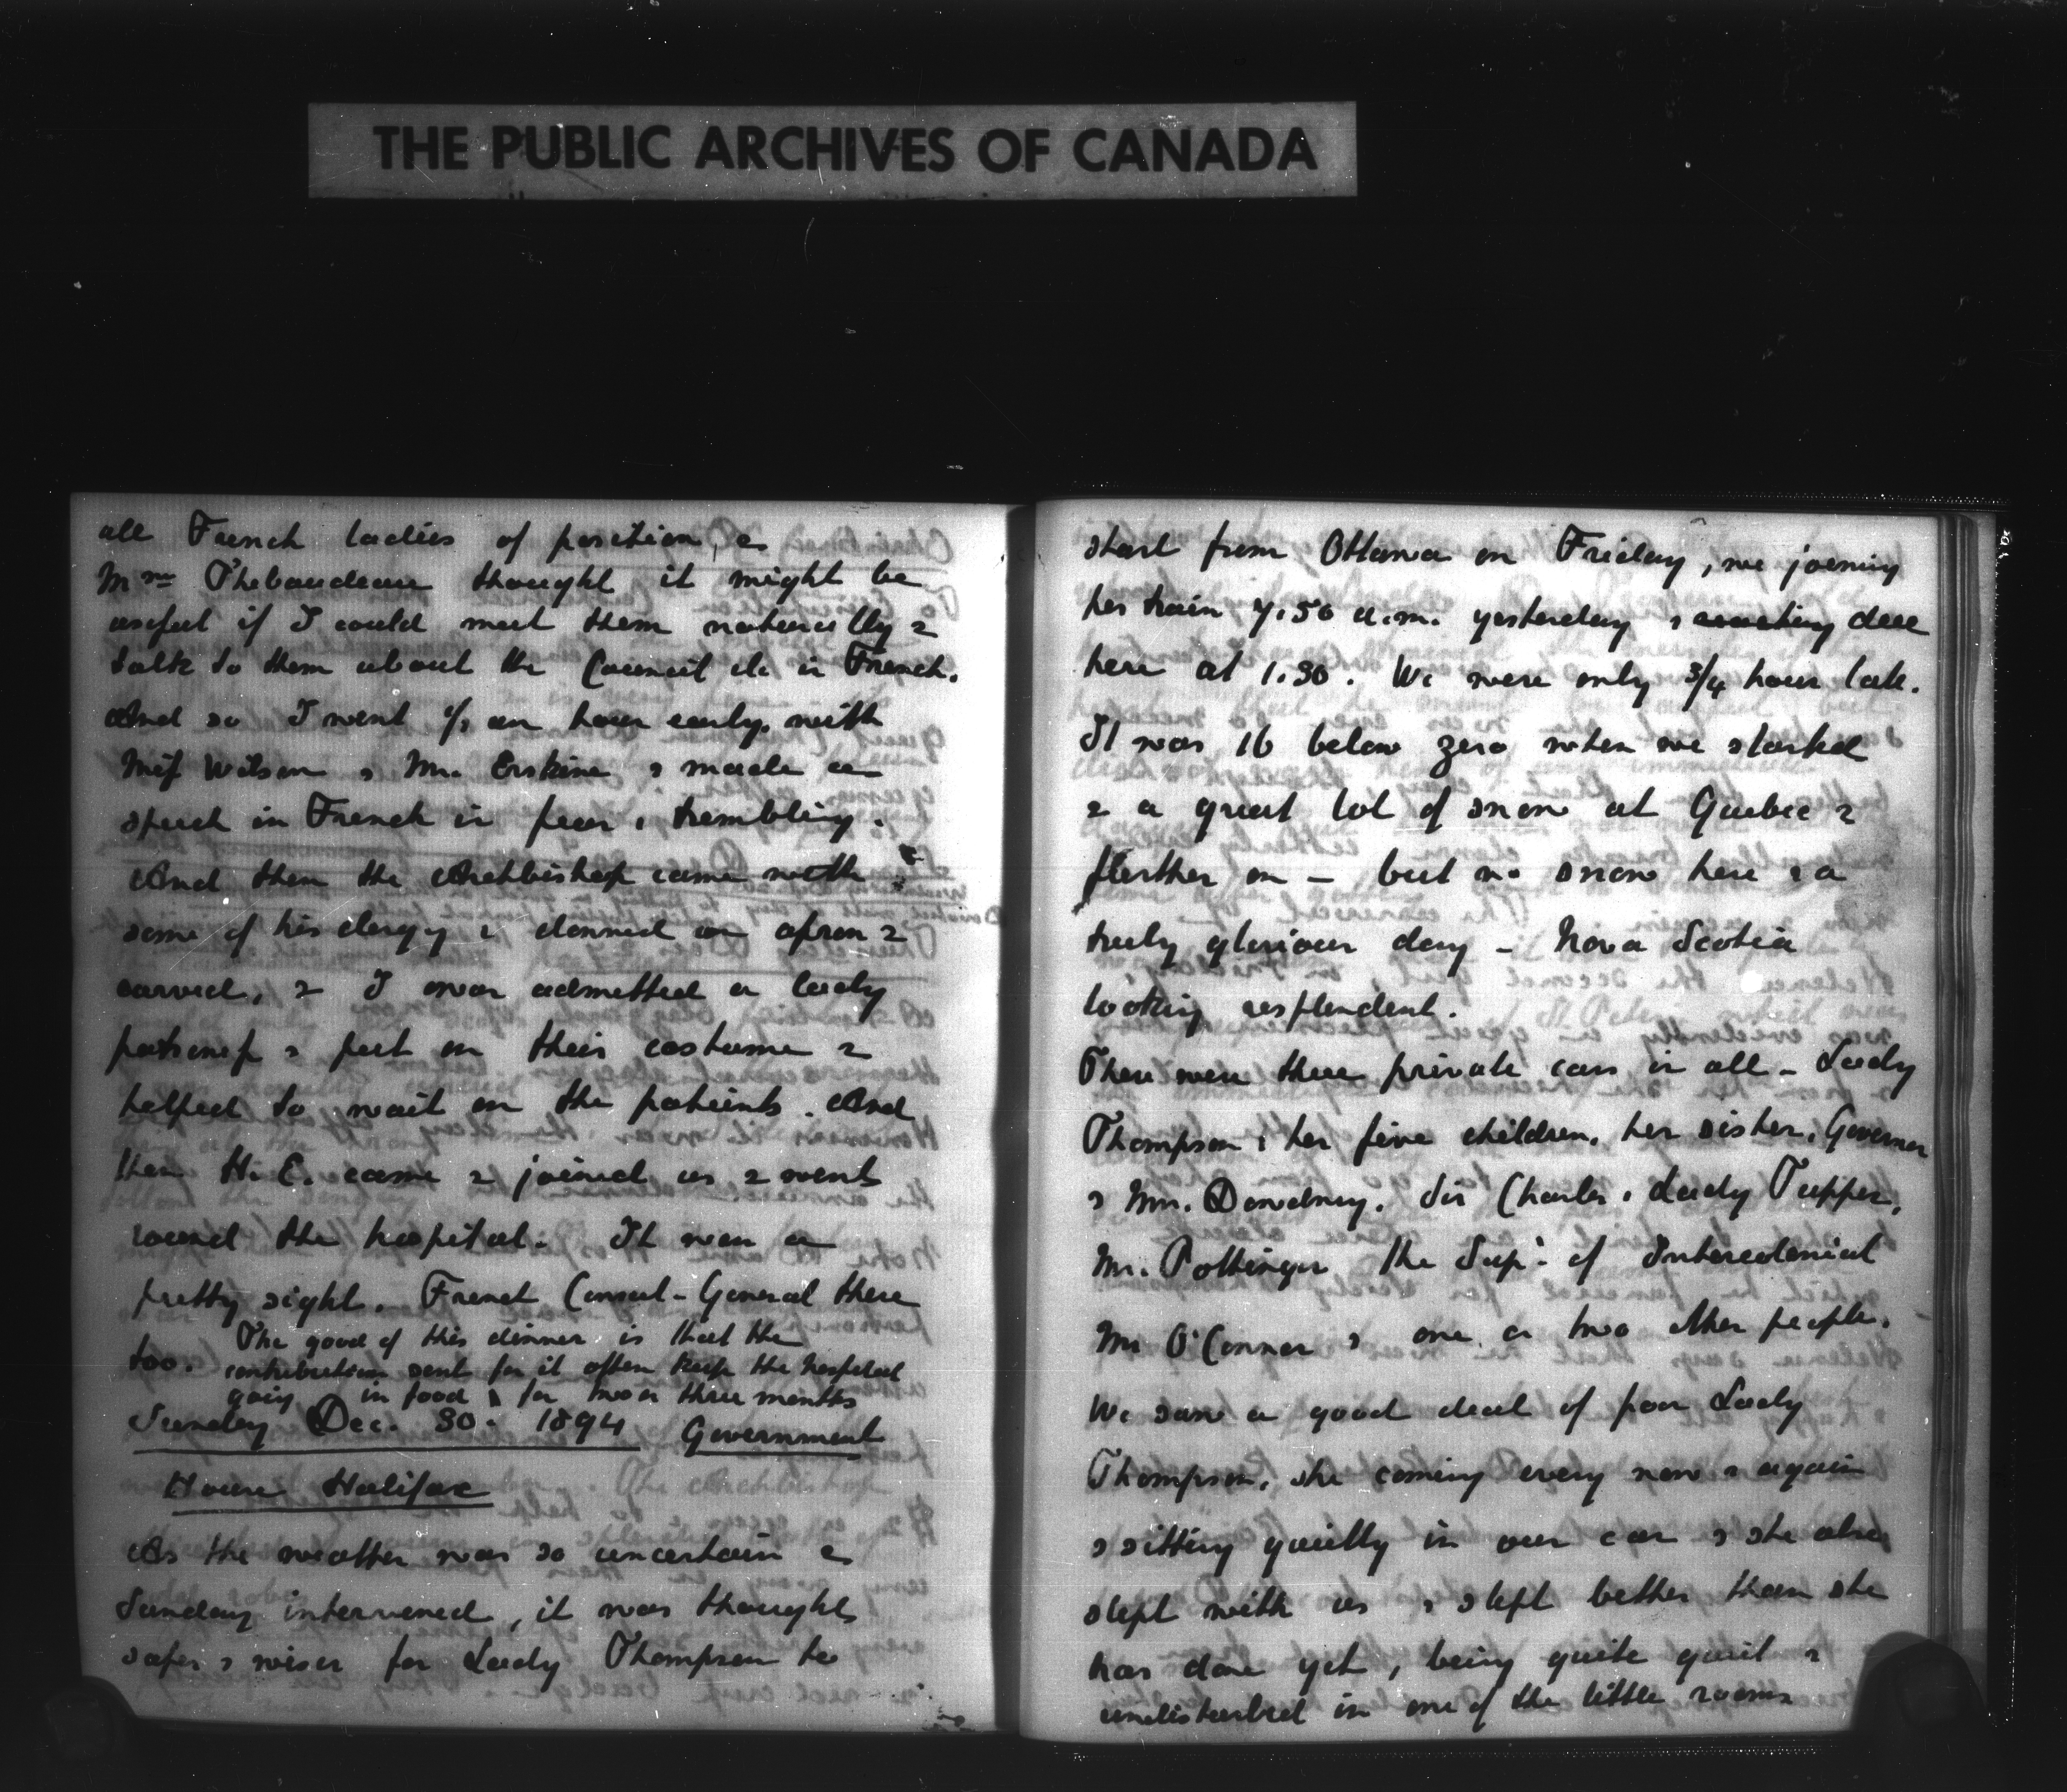 THE PUBLIC ARCHIVES OF CANADA
all French ladies of position, &
Mme Thebaudeau thought it might be
useful if I could meet them naturally &
talk to them about the Council etc in French.
And so I went ½ an hour early, with
Miss Wilson & Mr. Erskine & made a
speech in French in fear & trembling.
And then the Archbishop came with
some of his clergy & donned an apron &
carved, & I was admitted a lady
patroness & put on their costume &
helped to wait on the patients. And
then H.E. came & joined us & went
round the hospital. It was a
pretty sight. French Consul-General there
too. The good of this dinner is that the
contributions sent for it often keep the hospital
going in food for two or three months
Sunday Dec. 30. 1894 Government
House Halifax
As the weather was so uncertain &
Sunday intervened, it was thought
safer & wiser for Lady Thompson to
start from Ottawa on Friday, we joining
her train 7.50 a.m. yesterday & reaching
here at 1.30. We were only 3/4 hour late.
It was 16 below zero when we started
& a great lot of snow at Quebec &
further on – but no snow here & a
truly glorious day – Nova Scotia
looking resplendent.
There were three private cars in all – Lady
Thompson & her five children, her sister, Governor
& Mrs. Dewdney. Sir Charles & Lady Tupper,
Mr. Pottinger the Supt. of Intercolonial
Mr O'Connor & one or two other people.
We saw a good deal of poor Lady
Thompson, she coming every now & again
& sitting quietly in our car & she also
slept with us & slept better than she
has done yet, being quite quiet &
undisturbed in one of the little rooms